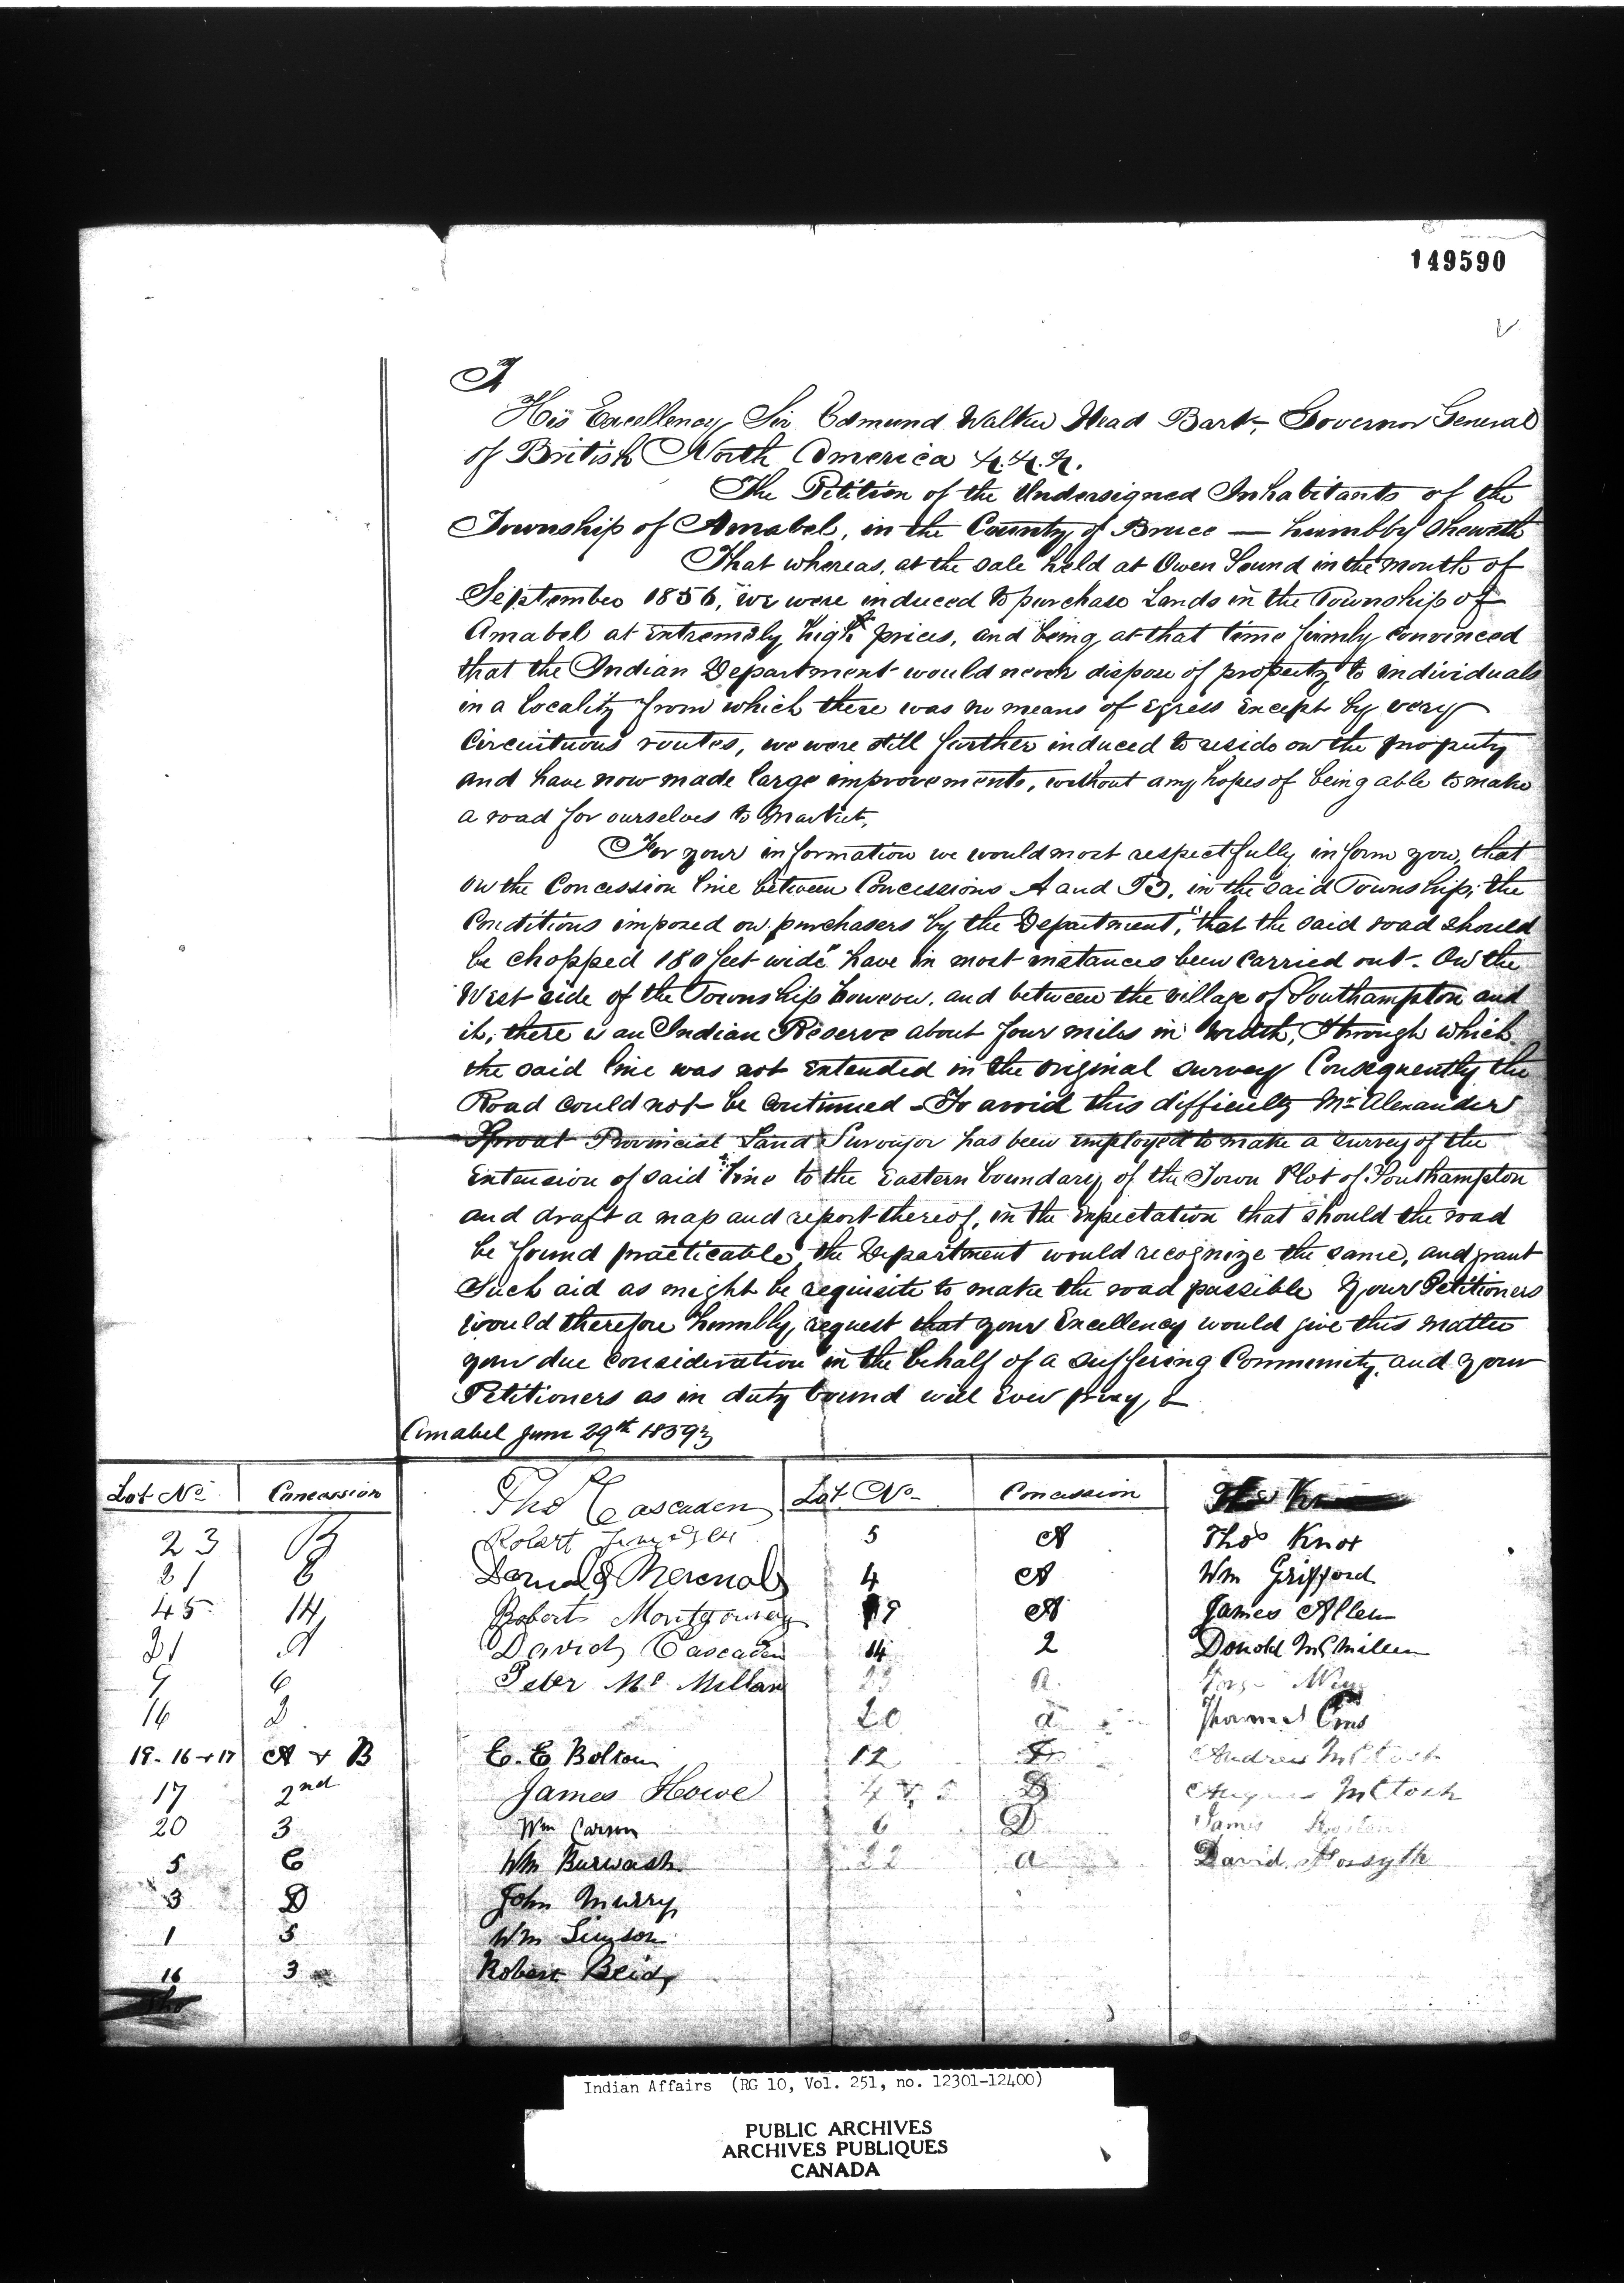 149590
To
His Excellency Sir Edmund Walker Head Bart- Governor General
of British North America &.&.&.
The Petition of the Undersigned Inhabitants of the
Township of Amabel, in the County of Bruce — humbly sheweth
That whereas, at the sale held at Owen Sound in the month of
September 1856, we were induced to purchase Lands in the Township of
Amabel at extremely high prices, and being at that time firmly convinced
that the Indian Department would never dispose of property to individuals
in a locality from which there was no means of Egress Except by very
Circuituous routes, we were still further induced to reside on the property
and have now made large improvements, without any hopes of being able to make
a road for ourselves to Market.
For your information we would most respectfully inform you, that
on the Concession line between Concessions A and B. in the said Township, the
Conditions imposed on purchasers by the Department, "that the said road should
be chopped 180 feet wide" have in most instances been carried out. On the
West side of the Township however, and between the Village of Southampton and
it, there is an Indian Reserve about four miles in width, through which
the said line was not extended in the original survey Consequently the
Road could not be continued - To avoid this difficulty Mr Alexander
Sproat Provincial Land Surveyor has been employed to make a survey of the
Extension of said line to the Eastern boundary of the Town Plot of Southampton
and draft a map and report thereof, in the expectation that should the road
be found practicable, the Department would recognize the same, and grant
Such aid as might be requisite to make the road passible Your Petitioners
would therefore humbly request that your Excellency would give this matter
your due consideration in the behalf of a suffering Community, and your
Petitioners as in duty bound will Ever pray &
Amabel June 29th 1859
Lot No Concession Thos Cascaden Lot No- Concession
23 B Robert 5 A Thos Knox
21 8 4 A Wm Grifford
45 14 Robert Montgomery 9 A James Allen
21 A David Cascaden 14 2 Donold McMillen
9 6 Peter Mc Millan 23 a.
16 2 20 a
19-16+17 A + B E. E. Bolton 12 Andrew
17 2nd James Howe D Angus McItosh
20 3 Wm Carson 6 D James
5 C Wm Burwash 22 a David Forsyth
3 D John Murry
1 5 Wm Simson
16 3 Robert Reid
Indian Affairs (RG 10, Vol. 251, no. 12301-12400)
PUBLIC ARCHIVES
ARCHIVES PUBLIQUES
CANADA